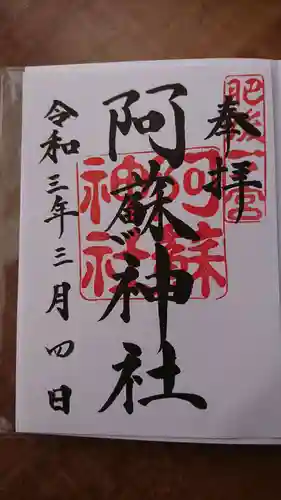 奉拝
肥後一宮
阿蘇神社
阿蘇神社
令和三年三月四日